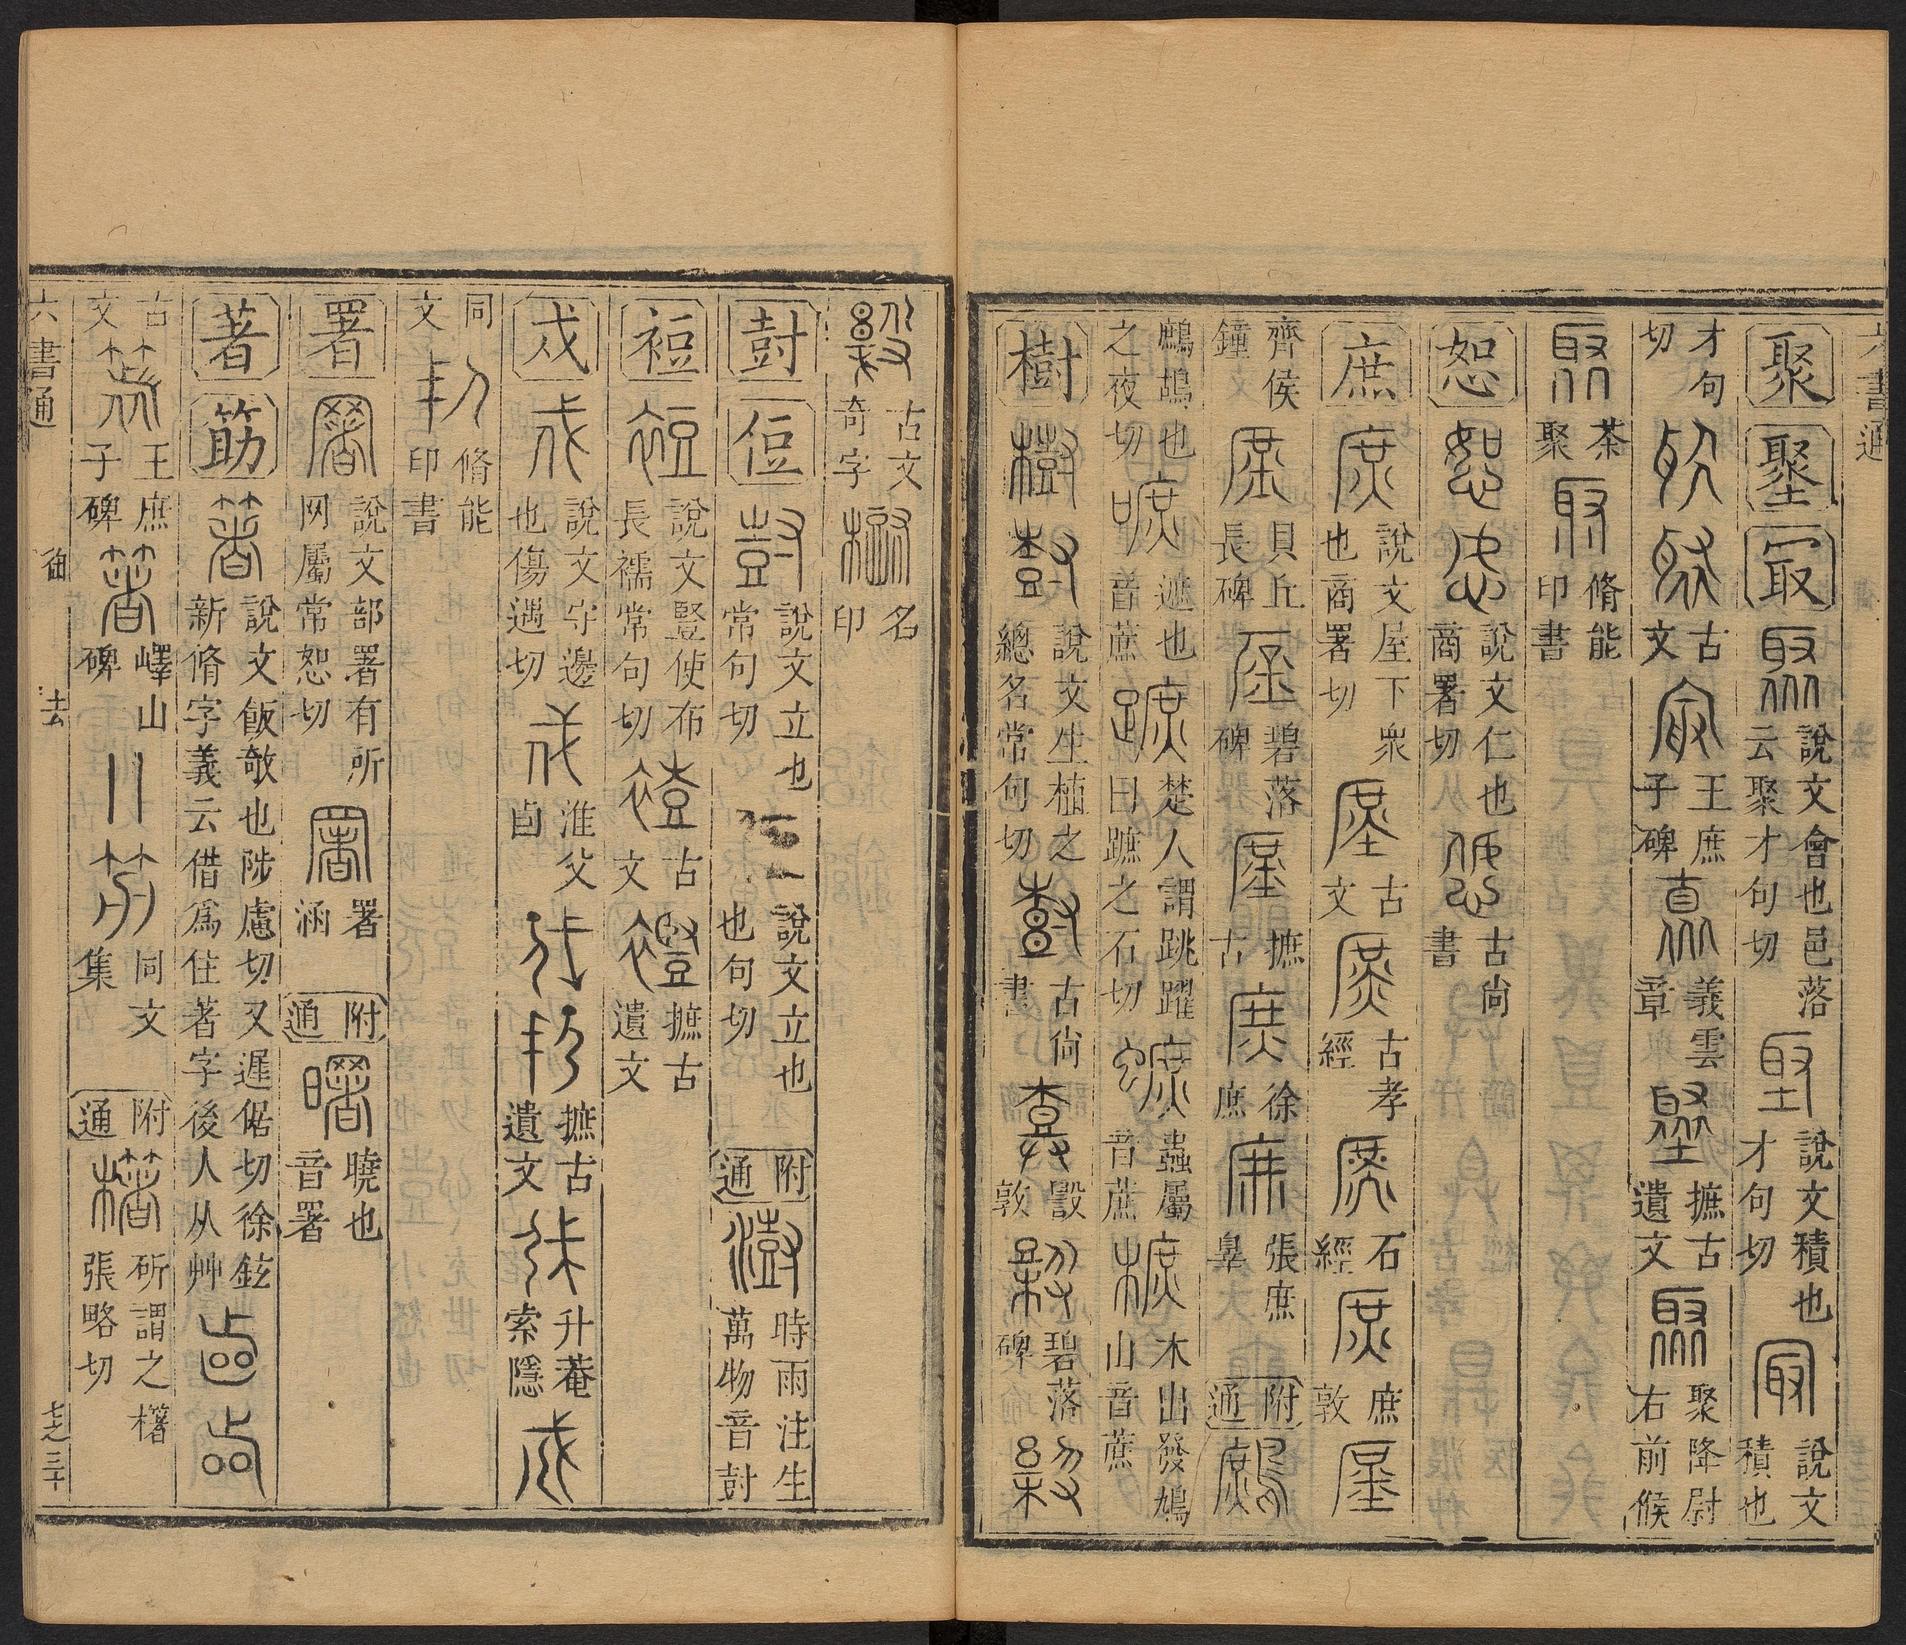 六書通
聚 聖 冣 說文會也邑落云聚才句切 說文積也才句切 說文積也
才句切 古文 王庶子碑 義雲章 摭古遺文 聚降尉右前候
茶聚 脩能印書
恕 說文仁也商署切 古尚書
庶 說文屋下衆也商署切 古文 古孝經 石經 庶敦
齊侯鐘 貝丘長碑 碧落碑 摭古 徐庶 張庶辠 附通
鷓鴣也之夜切 遮也音蔗 楚人謂跳躍曰蹠之石切 蟲屬音蔗 木出發鳩山音蔗
樹 說文生植之總名常句切 古尚書 毀敦 碧落碑
古文奇字 名印
尌 侸 說文立也常句切 說文立也也句切 附通 時雨注生萬物音尌
裋 說文豎使布長襦常句切 古文 摭古遺文
戍 說文守邊也傷遇切 淮父卣 摭古遺文 升菴索隱
同文 脩能印書
署 說文部署有所网屬常恕切 署涵 附通 曉也音署
著 筯 說文飯敧也陟慮切又遲倨切徐鉉新脩字義云借爲住著字後人从艸
古文 王庶子碑 嶧山碑 同文集 附通 斫謂之櫡張略切
六書通 御 去 七之三十